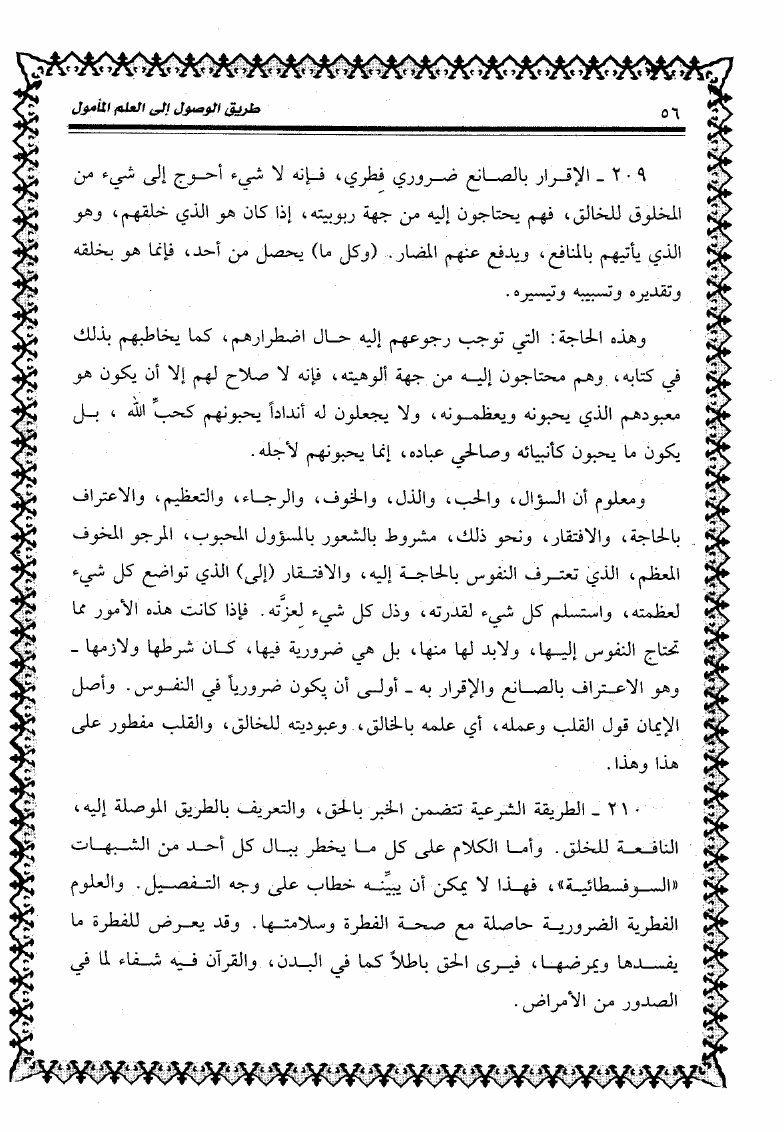 ٥٦ طريق الوصول إلى العلم المأمول
٢٠٩ ـ الإقرار بالصانع ضروري فطري، فإنه لا شيء أحوج إلى شيء من
المخلوق للخالق، فهم يحتاجون إليه من جهة ربوبيته، إذا كان هو الذي خلقهم، وهو
الذي يأتيهم بالمنافع، ويدفع عنهم المضار. (وكل ما) يحصل من أحد، فإنما هو بخلقه
وتقديره وتسبيبه وتيسيره.
وهذه الحاجة: التي توجب رجوعهم إليه حال اضطرارهم، كما يخاطبهم بذلك
في كتابه، وهم محتاجون إليه من جهة ألوهيته، فإنه لا صلاح لهم إلا أن يكون هو
معبودهم الذي يحبونه ويعظمونه، ولا يجعلون له أنداداً يحبونهم كحبِّ الله ، بل
يكون ما يحبون كأنبيائه وصالحي عباده، إنما يحبونهم لأجله.
ومعلوم أن السؤال، والحب، والذل، والخوف، والرجاء، والتعظيم، والاعتراف
بالحاجة، والافتقار، ونحو ذلك، مشروط بالشعور بالمسؤول المحبوب، المرجو المخوف
المعظم، الذي تعترف النفوس بالحاجة إليه، والافتقار (إلى) الذي تواضع كل شيء
لعظمته، واستسلم كل شيء لقدرته، وذل كل شيء لعِزَّته. فإذا كانت هذه الأمور مما
تحتاج النفوس إليها، ولابد لها منها، بل هي ضرورية فيها، كان شرطها ولازمها ـ
وهو الاعتراف بالصانع والإقرار به ـ أولى أن يكون ضرورياً في النفوس. وأصل
الإيمان قول القلب وعمله، أي علمه بالخالق، وعبوديته للخالق، والقلب مفطور على
هذا وهذا.
٢١٠ ـ الطريقة الشرعية تتضمن الخبر بالحق، والتعريف بالطريق الموصلة إليه،
النافعة للخلق. وأما الكلام على كل ما يخطر ببال كل أحد من الشبهات
«السوفسطائية»، فهذا لا يمكن أن يبيِّنه خطاب على وجه التفصيل. والعلوم
الفطرية الضرورية حاصلة مع صحة الفطرة وسلامتها. وقد يعرض للفطرة ما
يفسدها ويمرضها، فيرى الحق باطلاً كما في البدن، والقرآن فيه شفاء لما في
الصدور من الأمراض.